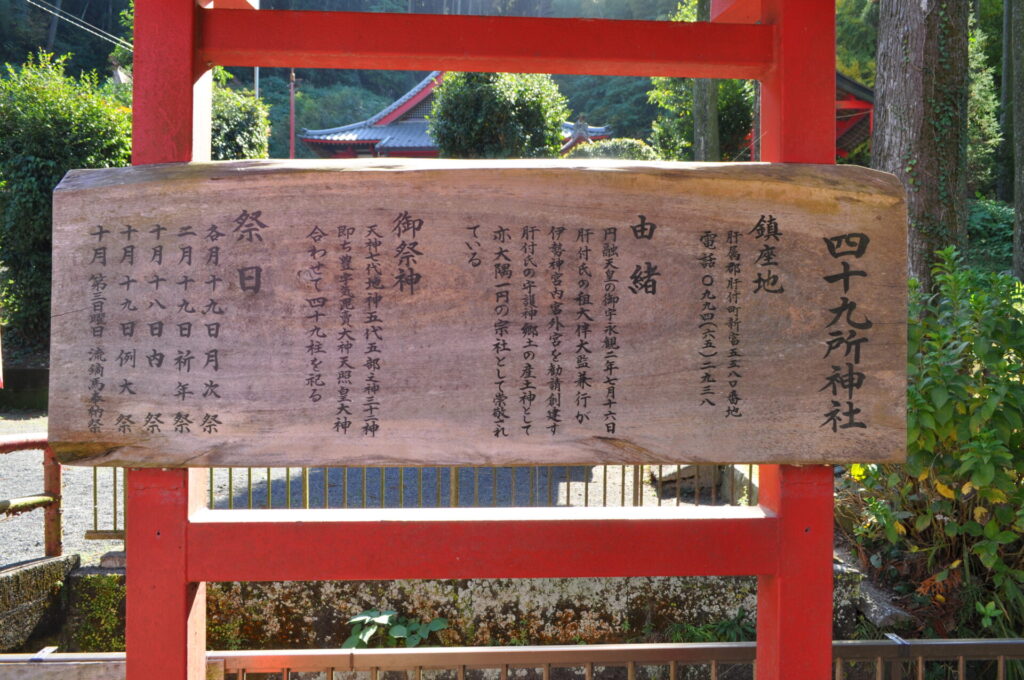 四十九所神社
鎮座地
肝属郡肝付町新富五五八〇番地
電話 〇九九四(六五)二九三八
由緒
円融天皇の御宇永観二年七月十六日
肝付氏の祖大伴大監兼行が
伊勢神宮内宮外宮を勧請創建す
肝付氏の守護神郷土の産土神として
亦大隅一円の宗社として崇敬され
ている
御祭神
天神七代地神五代五部之神三十二神
即ち豊宇気毘賣大神天照皇大神
合わせて四十九柱を祀る
祭日
各月十九日月次祭
二月十九日祈年祭
十月十八日内祭
十月十九日例大祭
十月 第三日曜日 流鏑馬奉納祭